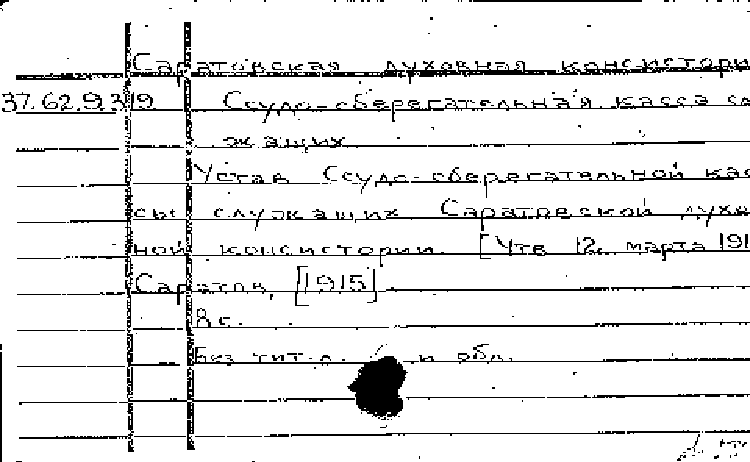 Саратовская духовная консистори
37.62.9.319 Ссудо-сберегательная касса с
жащих
Устав Ссудо-сберегательной кас
сы служащих Саратовской духо
ной консистории. [Утв 12 марта 191
Саратов, [1915].
8 с.
Без тит. л. и обл.